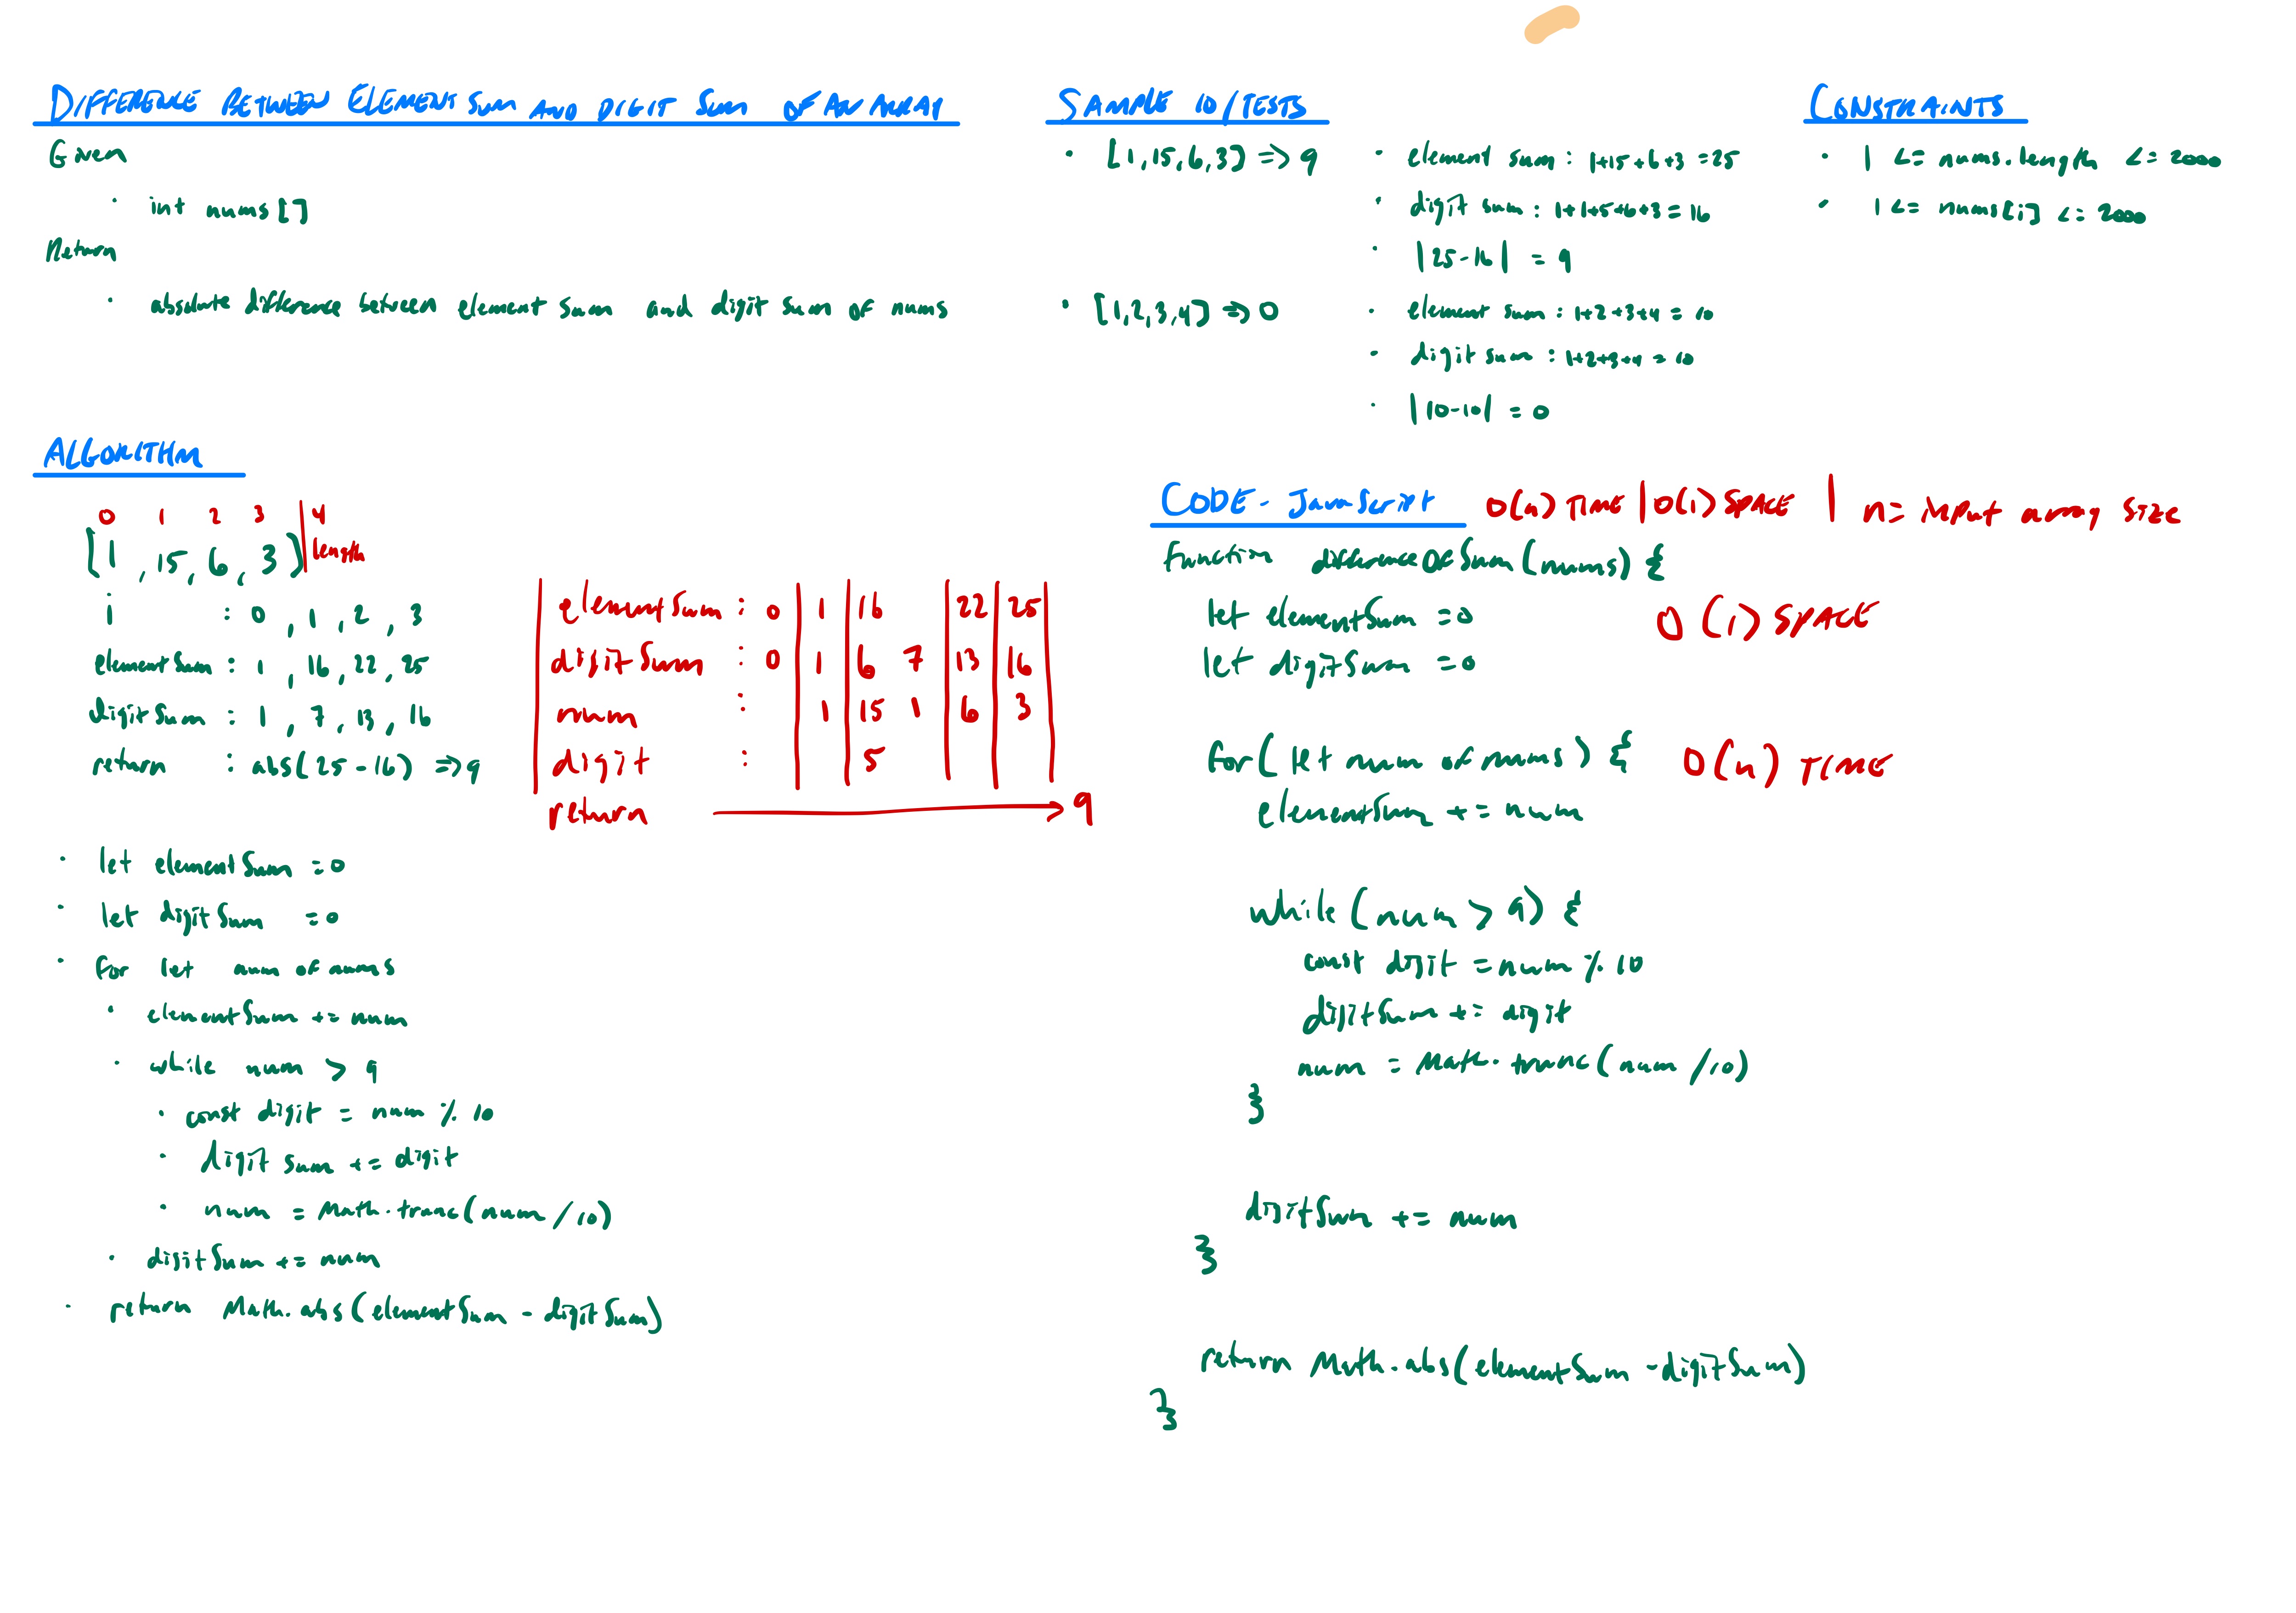 DIFFERENCE BETWEEN ELEMENT SUM AND DIGIT SUM OF AN ARRAY
Given
· int nums[]
Return
· absolute difference between element sum and digit sum of nums
SAMPLE IO/TESTS
· [1,15,6,3] => 9
· element sum : 1+15+6+3 = 25
· digit sum : 1+1+5+6+3 = 16
· |25-16| = 9
· [1,2,3,4] => 0
· element sum : 1+2+3+4 = 10
· digit sum : 1+2+3+4 = 10
· |10-10| = 0
CONSTRAINTS
· 1 <= nums.length <= 2000
· 1 <= nums[i] <= 2000
ALGORITHM
0 1 2 3 | 4
[1, 15, 6, 3] | length
i : 0, 1, 2, 3
elementSum : 1, 16, 22, 25
digitSum : 1, 7, 13, 16
return : abs(25-16) => 9
elementSum : 0 | 1 | 16 | 22 | 25
digitSum : 0 | 1 | 6 7 | 13 | 16
num : | 1 | 15 1 | 6 | 3
digit : | | 5
return → 9
· let elementSum = 0
· let digitSum = 0
· for let num of nums
· elementSum += num
· while num > 9
· const digit = num % 10
· digit sum += digit
· num = Math.trunc(num/10)
· digitSum += num
· return Math.abs(elementSum - digitSum)
CODE - JavaScript O(n) TIME | O(1) SPACE | n = input array size
function differenceOfSum(nums) {
let elementSum = 0 O(1) SPACE
let digitSum = 0
for(let num of nums) { O(n) TIME
elementSum += num
while(num > 9) {
const digit = num % 10
digitSum += digit
num = Math.trunc(num/10)
}
digitSum += num
}
return Math.abs(elementSum - digitSum)
}